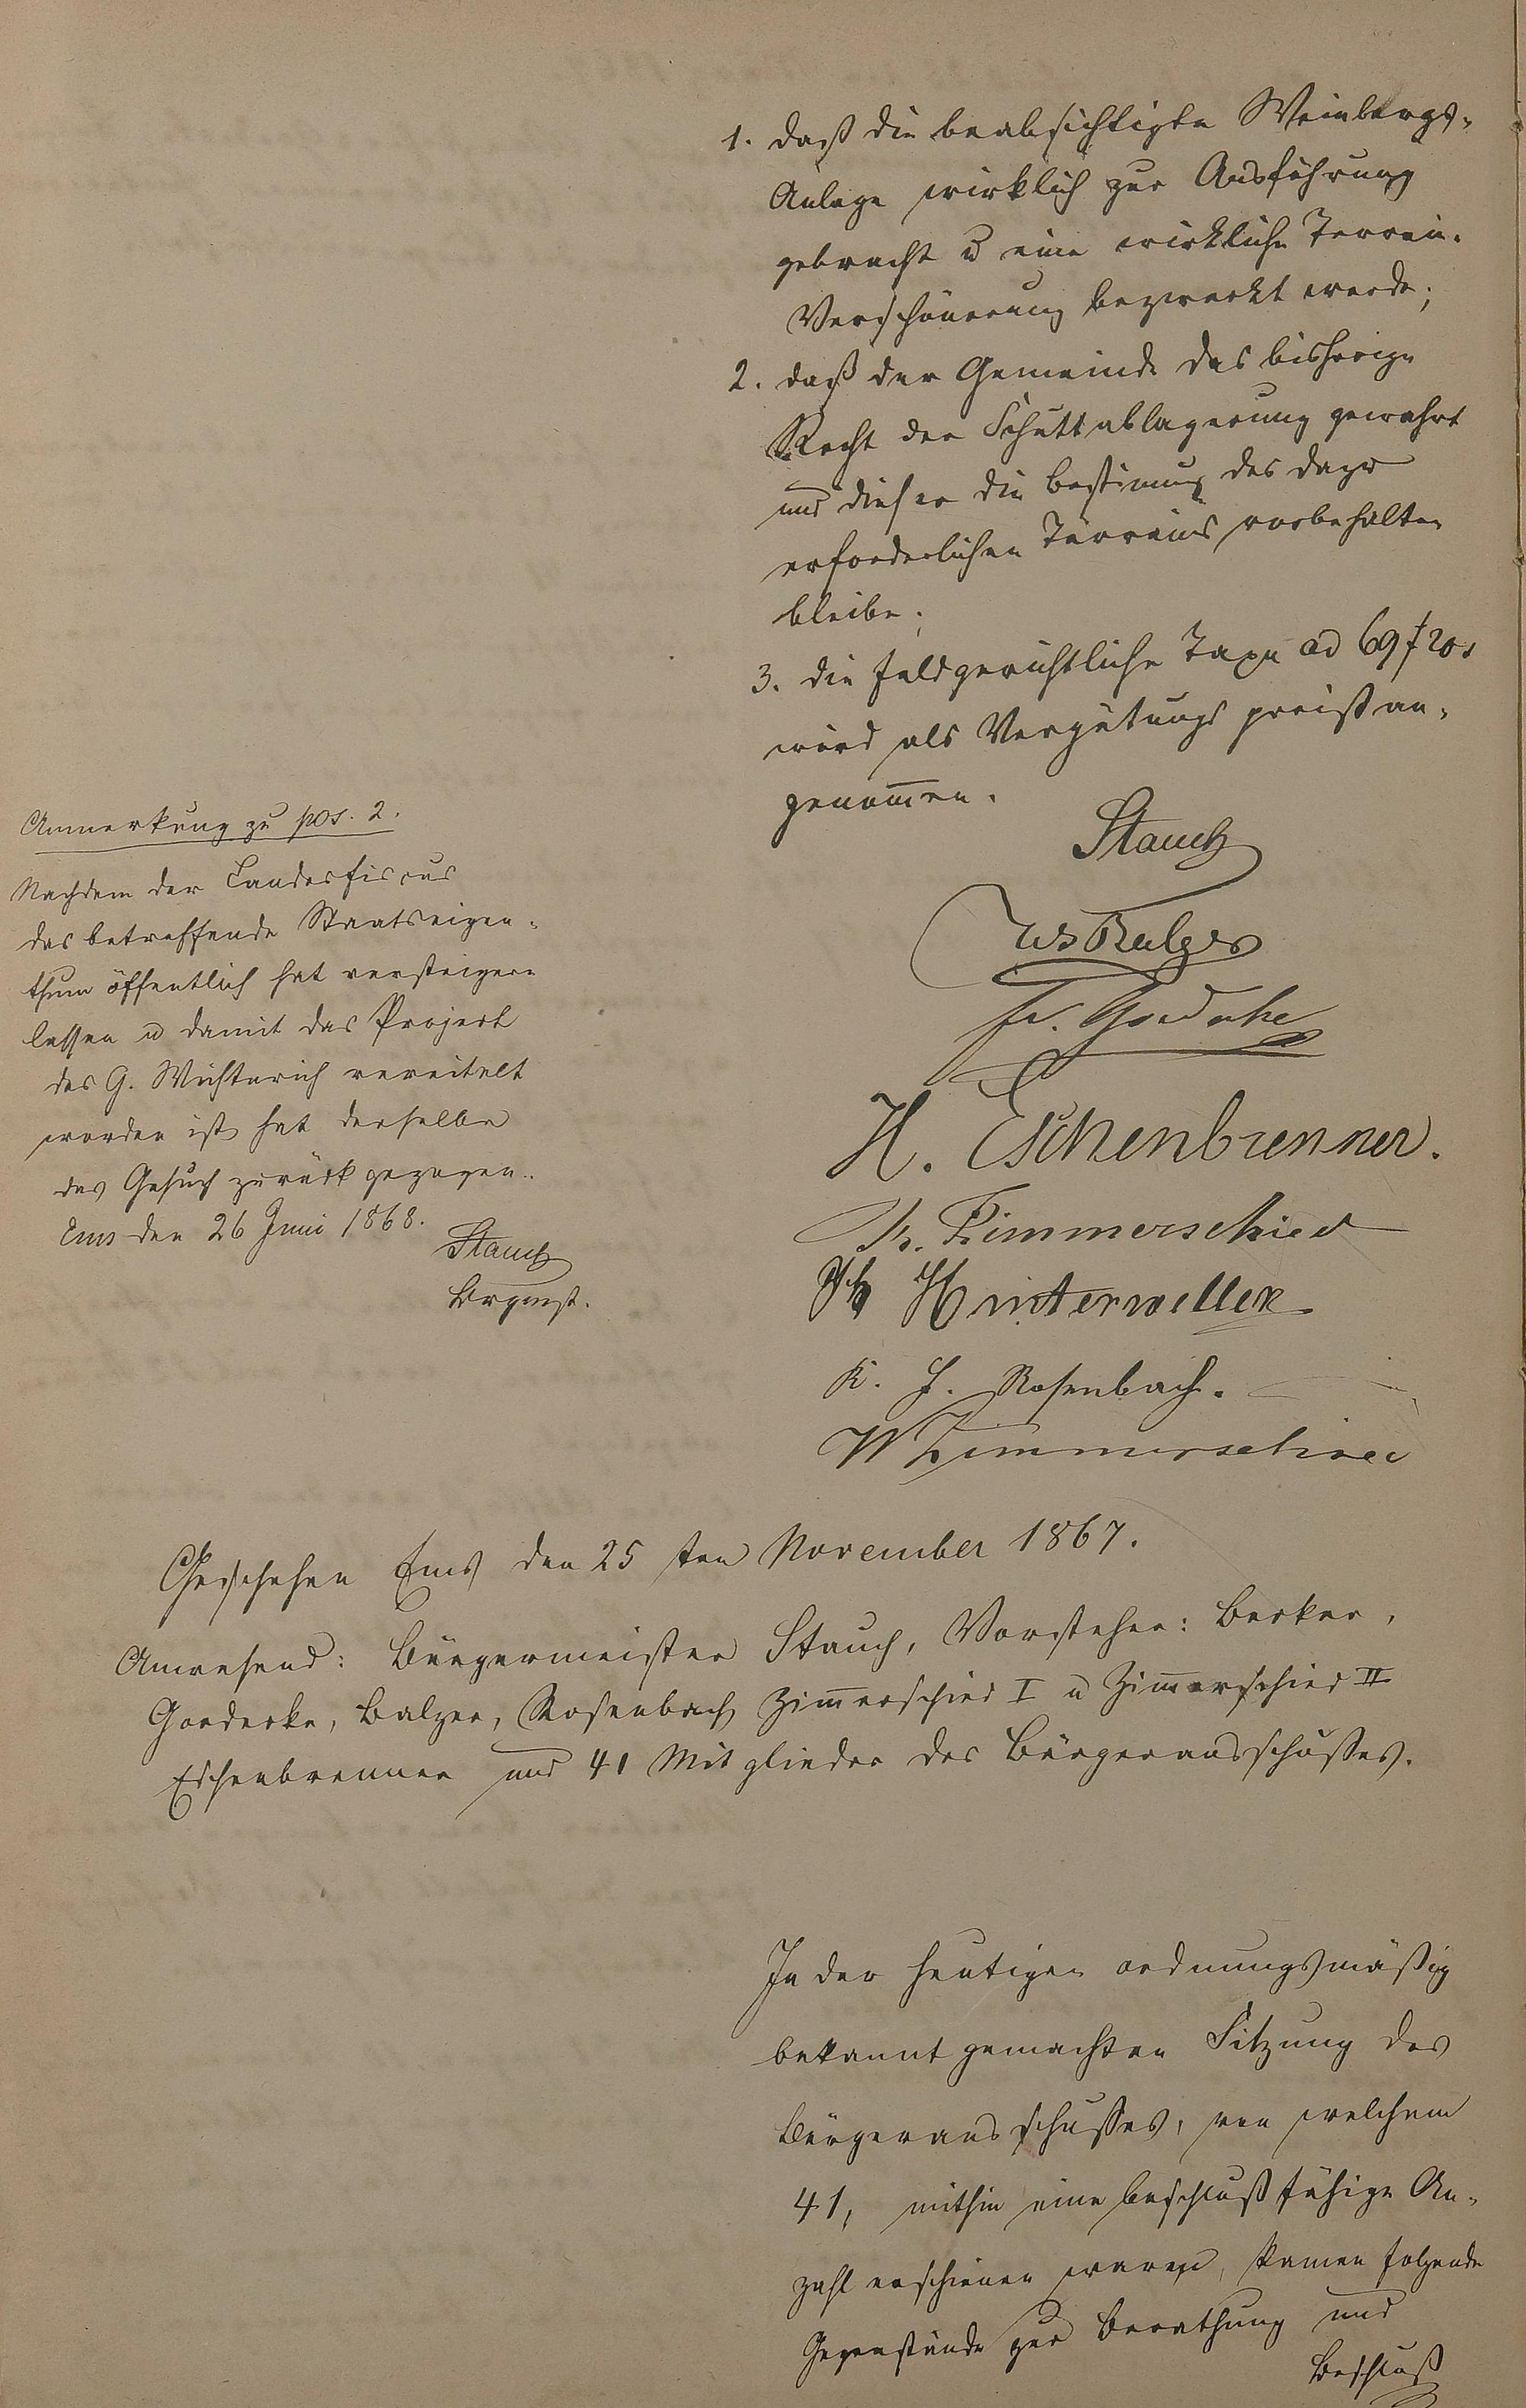 1. daß die beabsichtigte Weinbergs-
Anlage wirklich zur Ausführung
gebracht u eine wirkliche Terrain-
Verschönerung bezweckt werde;
2. daß der Gemeinde das bisherige
Recht der Schuttablagerung gewahrt
und dieser die Bestimung des dazu
erforderlichen Terrains vorbehalten
bleibe;
3. die feldgerichtliche Taxe ad 69 f 20
wird als Vergütungspreiß an-
genommen.
Stauch
Balzer
Fr. Goedecke
H. Eschenbrenner.
Zimmerschied
Hinterweller
K. J. Rosenbach.
W Zimmerschied
Anmerkung zu pos. 2.
Nachdem der Landesfiscus
das betreffende Staatseigen-
thum öffentlich hat versteigern
lassen u damit das Project
des G. Wichterich vereitelt
worden ist, hat derselbe
das Gesuch zurückgezogen.
Ems den 26 Juni 1868.
Stauch
Brgmst.
Geschehen Ems den 25 ten November 1867.
Anwesend: Bürgermeister Stauch, Vorsteher: Becker,
Goedecke, Balzer, Rosenbach Zimerschied I u Zimerschied II
Eschenbrenner und 41 Mitglieder des Bürgerausschußes.
In der heutigen ordnungsmäßig
bekannt gemachten Sitzung des
Bürgerausschußes, von welchem
41, mithin eine beschlußfähige An-
zahl erschienen waren, kamen folgende
Gegenstände zur Berathung und
Beschluß